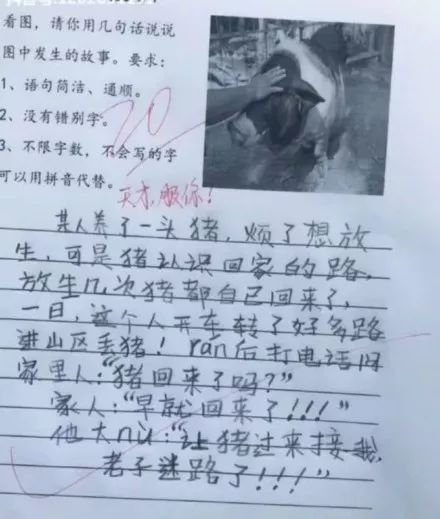 看图，请你用几句话说说
图中发生的故事。要求：
1、语句简洁、通顺。
2、没有错别字。
20
3、不限字数，不会写的字
可以用拼音代替。
天才，服你！
某人养了一头猪，烦了想放
生，可是猪认识回家的路，
放生n次猪都自己回来了，
一日，这个人开车转了好多路
进山区丢猪！ran后打电话问
家里人：“猪回来了吗？”
家人：“早就回来了！！！”
他大nù：“让猪过来接我，
老子迷路了！！！”